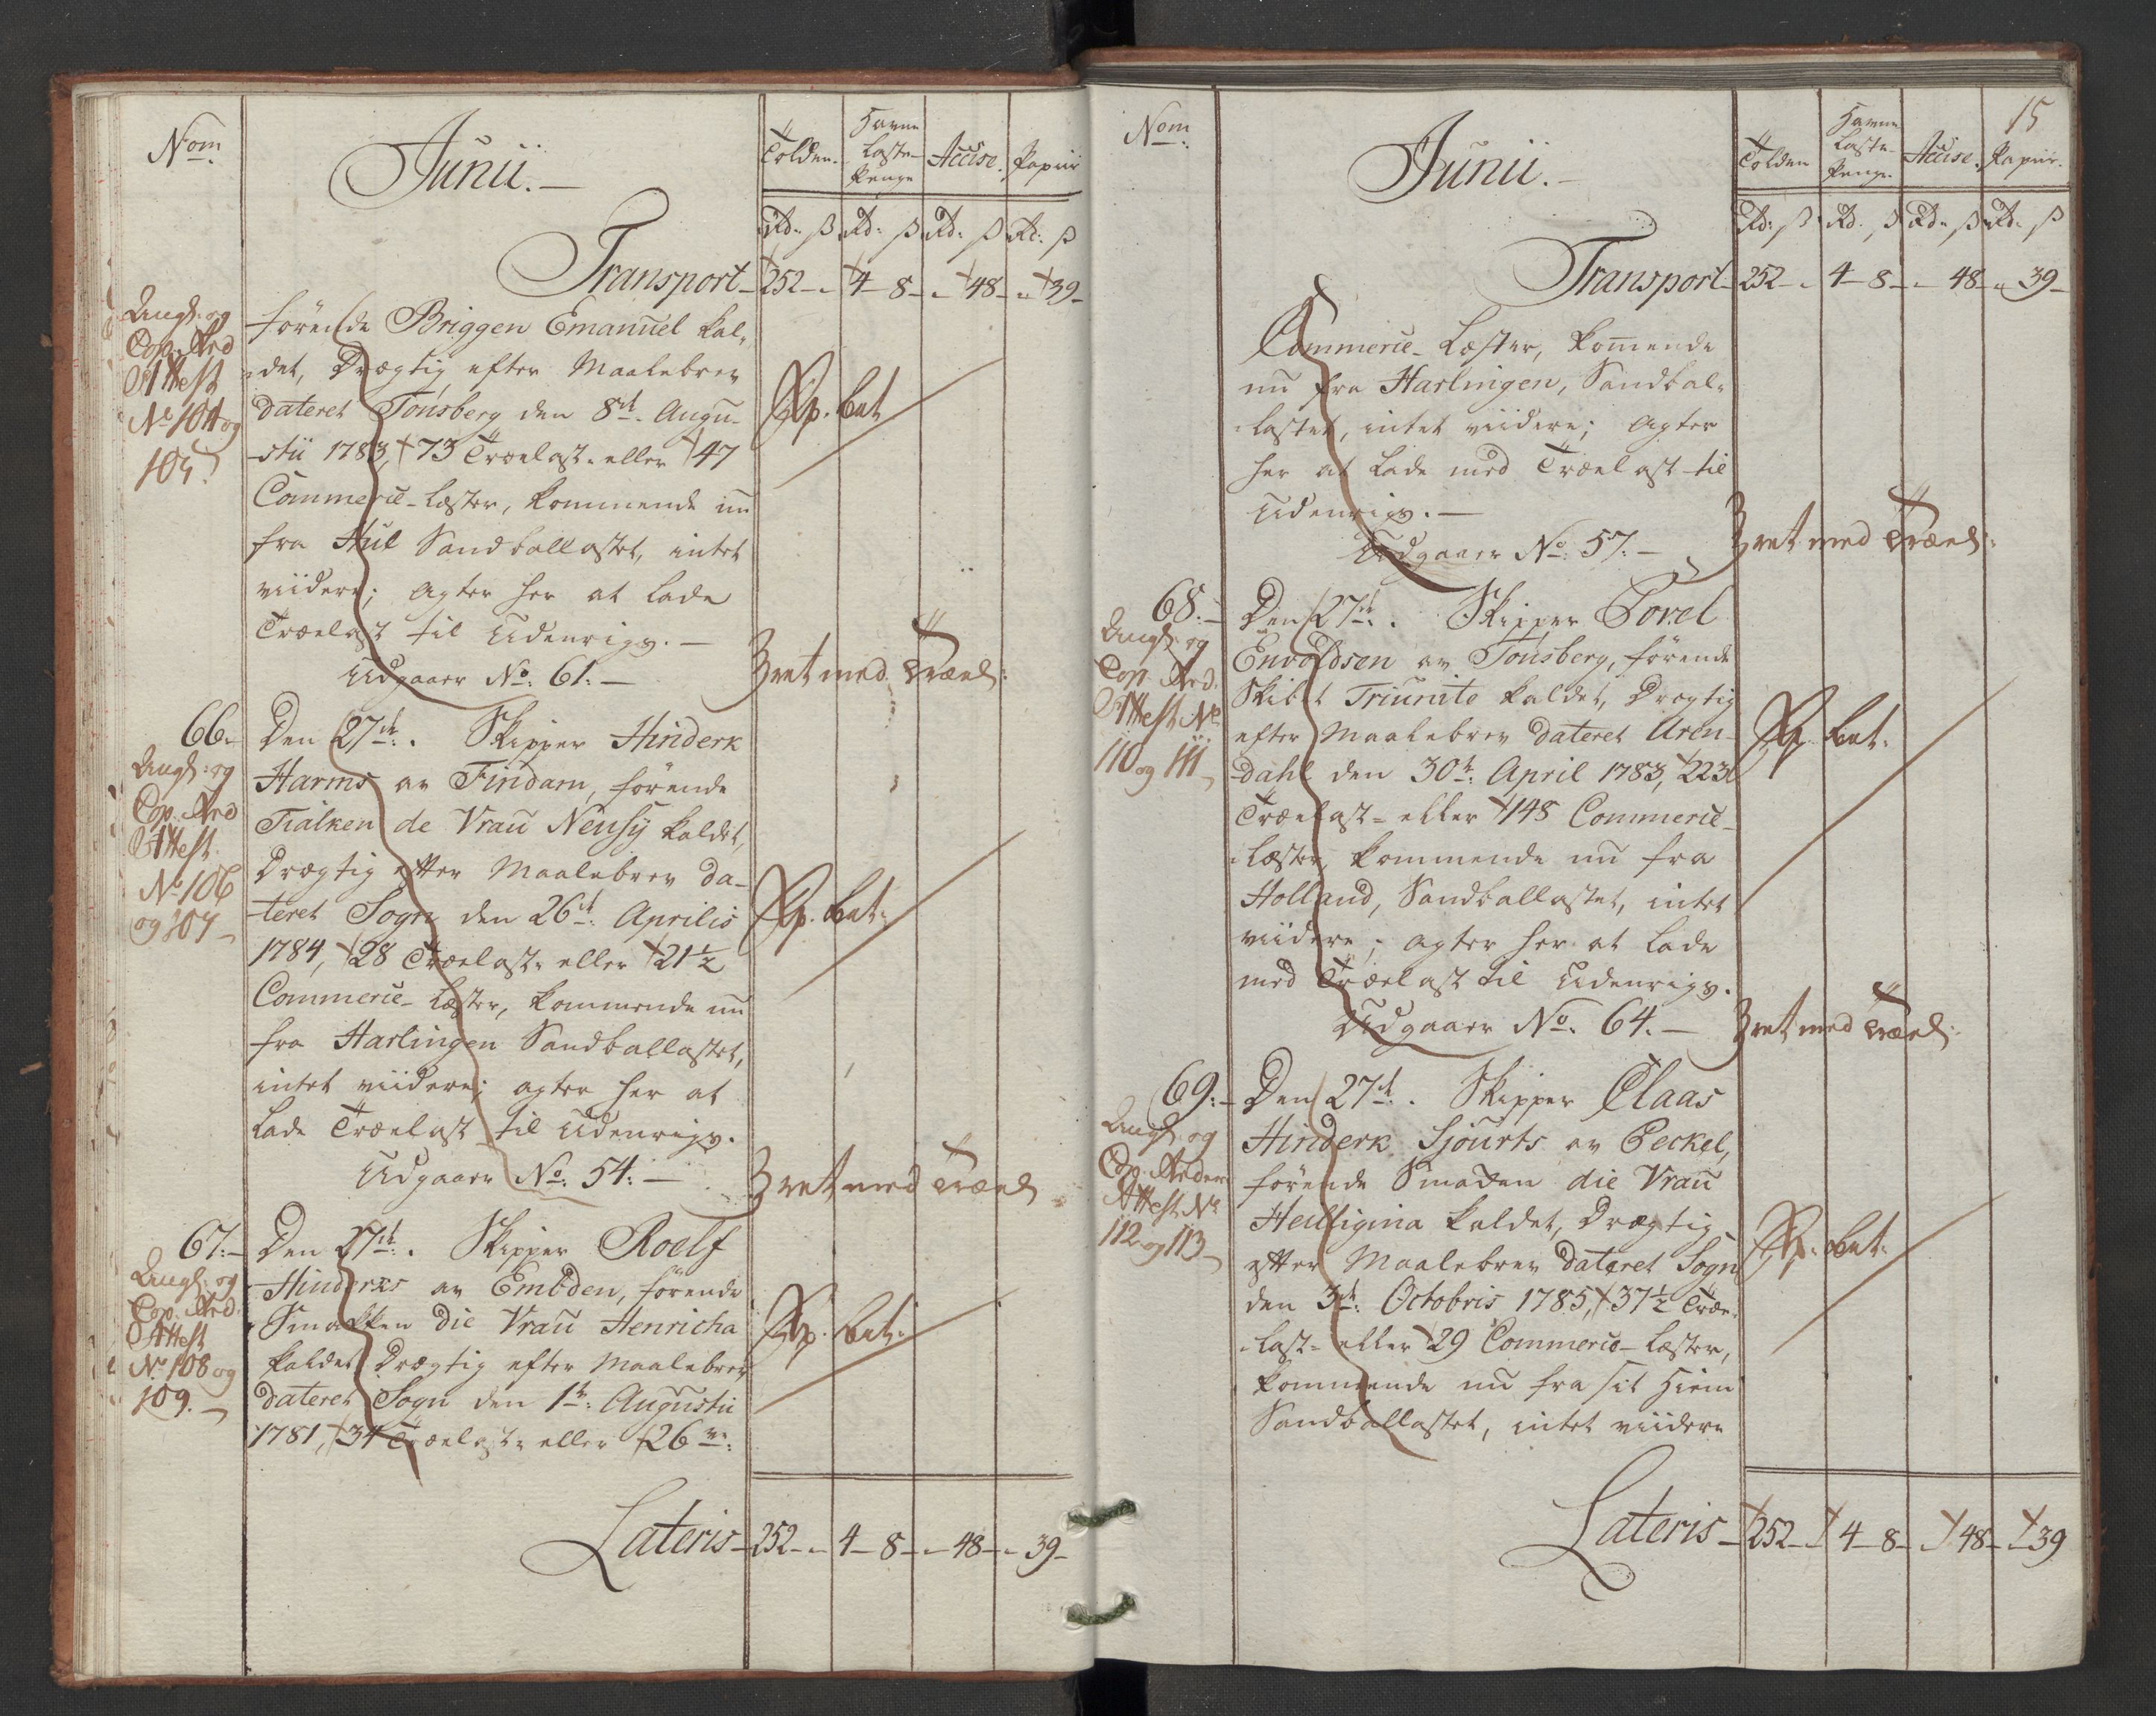 Nom
Junii.
Tolden.
Havne
Laste-
Penge
Accise.
Papiir
Rd: ß Rd: ß Rd: ß Rd: ß
Transport - 252 - " 4 - 8 - " - 48 - " 39 -
og
Cop. Ard
Attest
No 104 og
105
förende Briggen Emanuel kal-
det, Drægtig efter Maalebrev
dateret Tonsberg den 8de Augu-
stii 1783, 73 Trælast- eller 47
Commerce-Læster, kommende nu
fra Hul Sandballastet, intet
viidere; agter her at lade
Trælast til Udenrigs. —
Udgaaer No: 61. —
Pp. bet
3ret med Træl:
66.
og
Cop. Ard
Attest
No 106
og 107
Den 27de. Skipper Hinderk
Harms av Findam, förende
Tialken de Vrau Neusÿ kaldet,
Drægtig efter Maalebrev da-
teret Sogn den 26de Aprilis
1784, 28 Trælast- eller 21½
Commerce-Læster, kommende nu
fra Harlingen Sandballastet,
intet viidere; agter her at
lade Trælast til Udenrigs.
Udgaaer No: 54. —
Pp. bet:
3ret med Træl
67.
og
Cop. Ard.
Attest
No 108 og
109.
Den 27de. Skipper Roelf
Hinderks av Embden, förende
Smakken die Vrau Henricha
kaldet Drægtig efter Maalebrev
dateret Sogn den 1te Augustii
1781, 34 Trælast- eller 26
Pp. bet:
Lateris - 252 - " 4 - 8 - " - 48 - " 39 -
15
Nom
Junii. —
Tolden
Havne
Laste-
Penge
Accise.
Papiir.
Rd: ß Rd: ß Rd: ß Rd: ß
Transport - 252 - " 4 - 8 - " - 48 - " 39 -
Commerce-Læster, kommende
nu fra Harlingen, Sandbal-
lastet, intet viidere; agter
her at lade med Trælast til
Udenrigs. —
Udgaaer No: 57. —
3ret med Træel:
68.
og
Cop. Ard.
Attest No
110 og 111
Den 27de. Skipper Povel
Envoldsen av Tonsberg, förende
Skibet Triunite kaldet, Drægtig
efter Maalebrev dateret Aren-
dahl den 30te April 1783, 223
Trælast- eller 148 Commerce-
Læster, kommende nu fra
Holland, Sandballastet, intet
viidere; agter her at lade
med Trælast til Udenrigs.
Udgaaer No: 64. —
Pp. bet:
3ret med Træel:
69.
og
Cop. Arden
Attest No
112 og 113
Den 27de. Skipper Claas
Hinderk Sjourts av Peckel,
förende Smakken die Vrau
Heilligina kaldet, Drægtig
efter Maalebrev dateret Sogn
den 3de Octobris 1785, 37½ Træ-
last- eller 29 Commerce-Læster,
kommende nu fra sit Hiem
Sandballastet, intet viidere
Pp. bet:
Lateris - 252 - " 4 - 8 - " - 48 - " 39